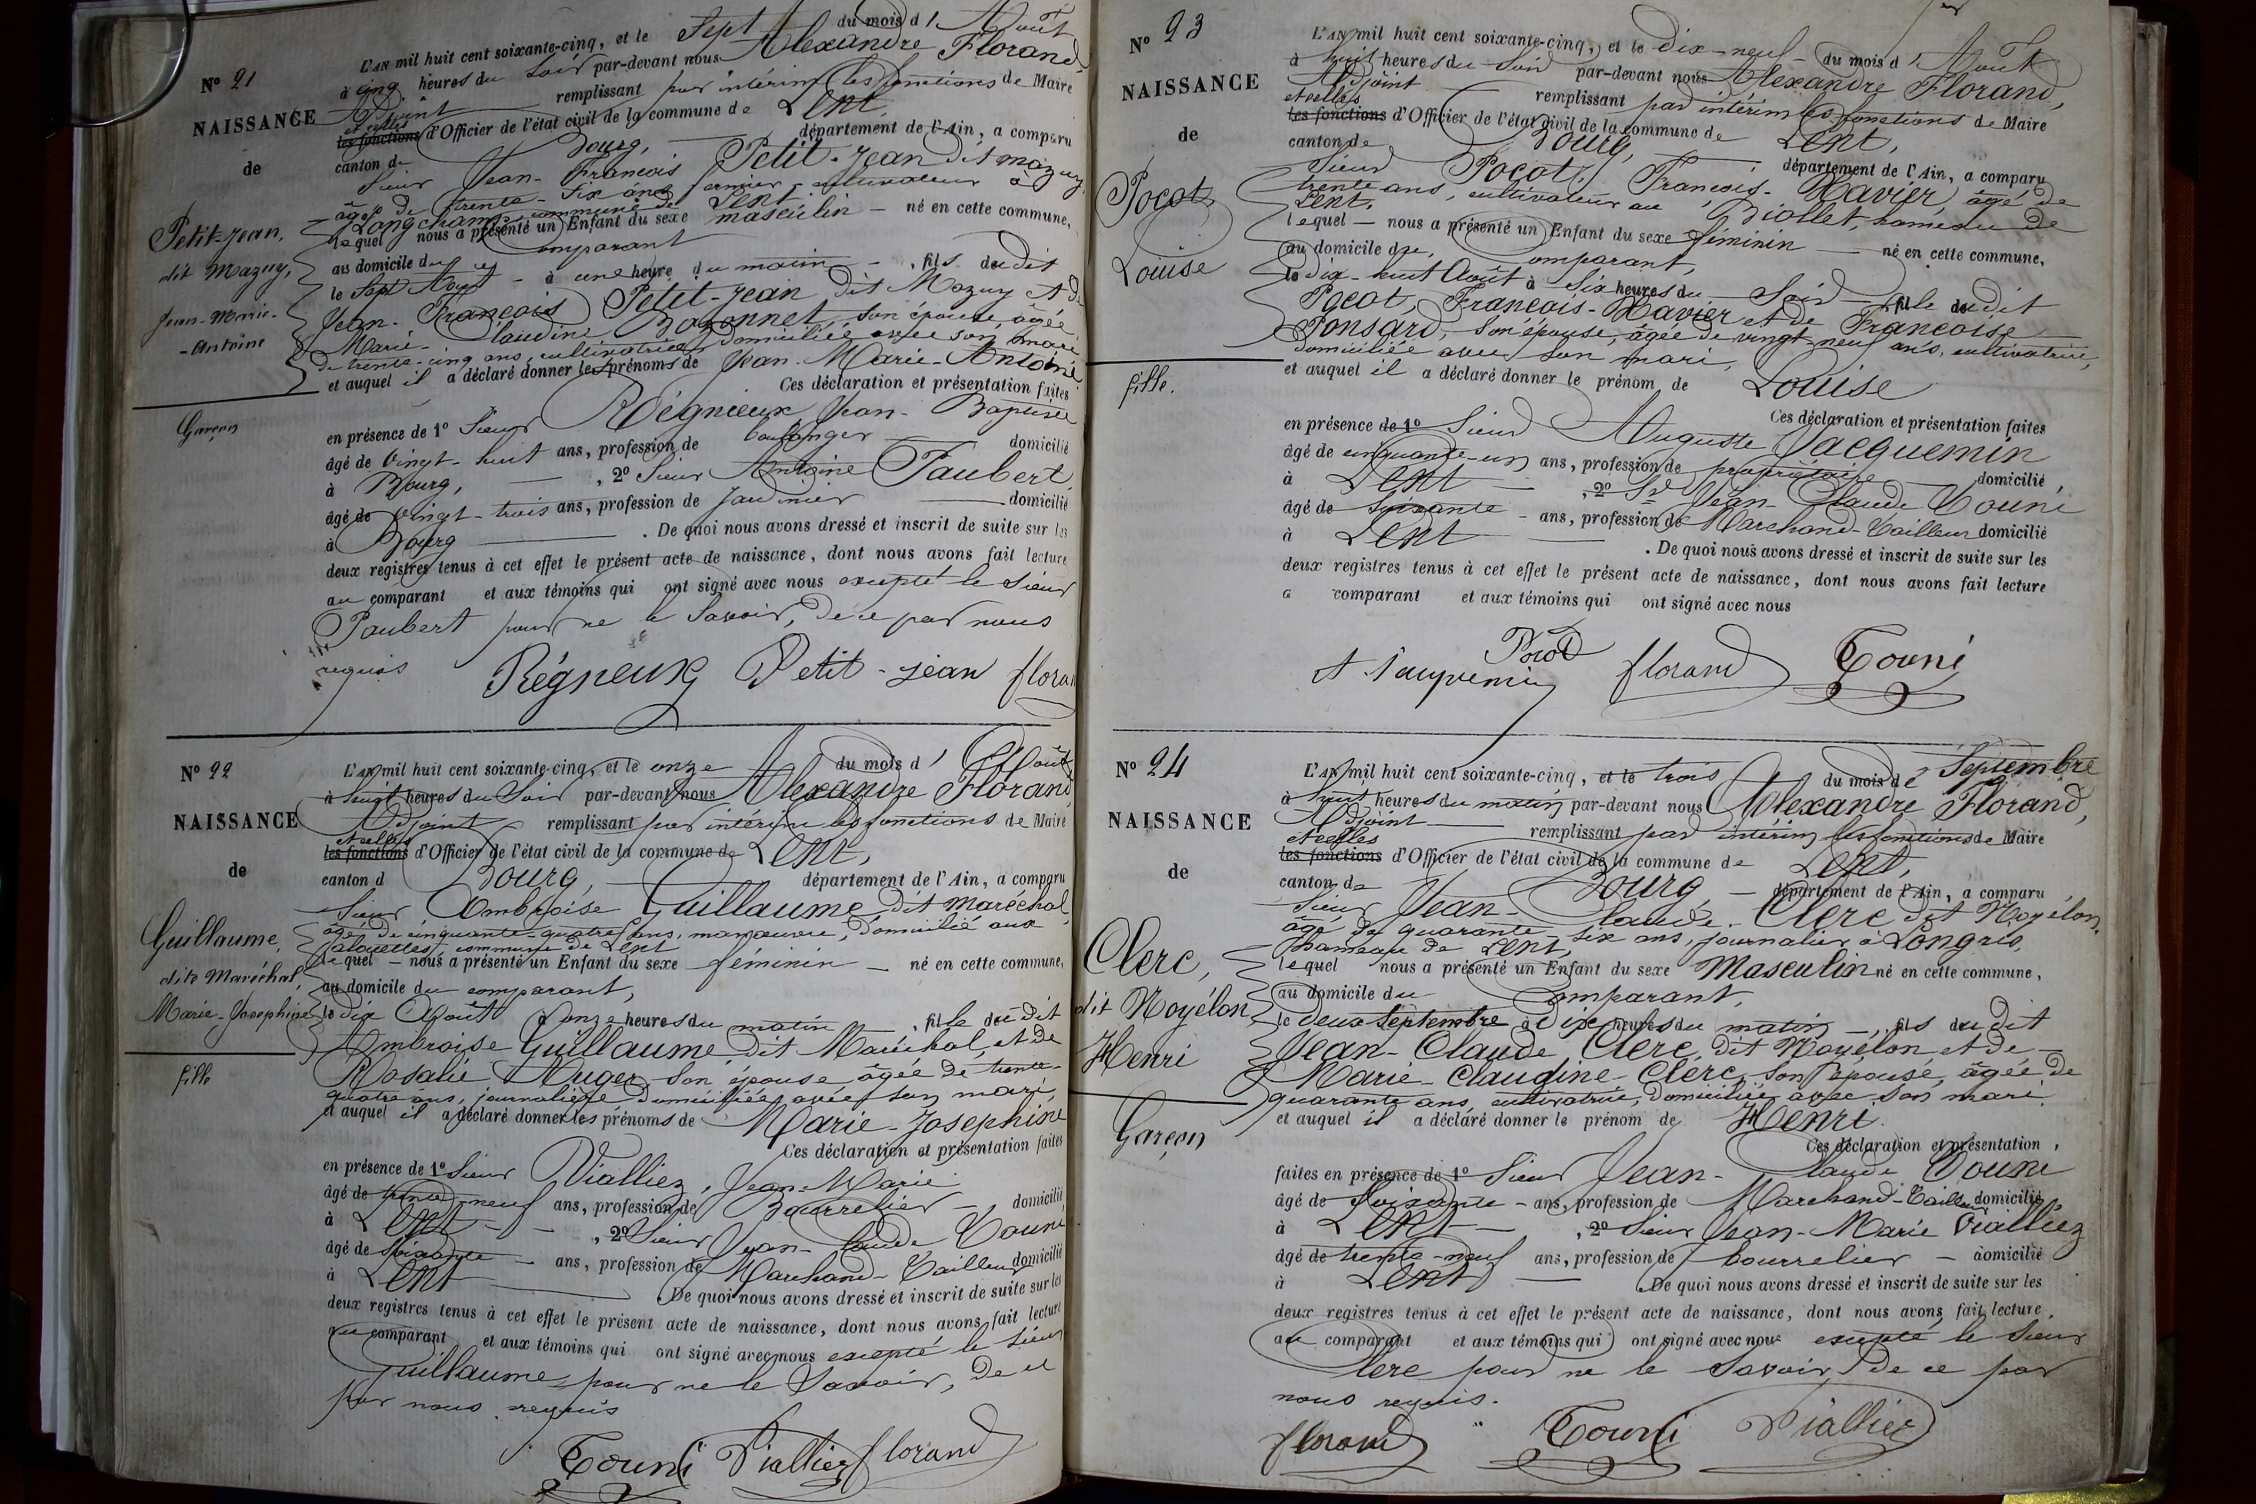 N° 21
NAISSANCE
de
Petit-Jean,
dit Mazuy,
Jean-Marie-
-Antoine
Garçon
L'AN mil huit cent soixante-cinq, et le Sept du mois d'Août
à cinq heures du Soir par-devant nous Alexandre Florand,
Adjoint remplissant par intérim les fonctions de Maire
et celles
les fonctions d'Officier de l'état civil de la commune de Lent,
canton de Bourg, département de l'Ain, a comparu
Sieur Jean-François Petit-Jean dit Mazuy,
âgé de trente-six ans, fermier-cultivateur à
Longchamp commune de Lent
lequel nous a présenté un Enfant du sexe masculin – né en cette commune,
au domicile du comparant
le Sept Août à une heure du matin, fils dudit
Jean-François Petit-Jean dit Mazuy et de
Marie-Claudine Bozonnet son épouse, âgée
de trente-cinq ans, cultivatrice, domiciliée avec son mari
et auquel il a déclaré donner les prénoms de Jean-Marie-Antoine
Ces déclaration et présentation faites
en présence de 1° Sieur Régnieux Jean-Baptiste
âgé de vingt-huit ans, profession de boulanger domicilié
à Bourg, 2° Sieur Antoine Paubert
âgé de vingt-trois ans, profession de Jardinier domicilié
à Bourg . De quoi nous avons dressé et inscrit de suite sur les
deux registres tenus à cet effet le présent acte de naissance, dont nous avons fait lecture
au comparant et aux témoins qui ont signé avec nous excepté le Sieur
Paubert pour ne le Savoir, de ce par nous
requis
Régneux Petit-jean floran
N° 22
NAISSANCE
de
Guillaume,
dite Maréchal,
Marie-Josephine
fille
L'AN mil huit cent soixante-cinq, et le onze du mois d'Août
à huit heures du Soir par-devant nous Alexandre Florand
Adjoint remplissant par intérim les fonctions de Maire
et celles
les fonctions d'Officier de l'état civil de la commune de Lent,
canton d Bourg, département de l'Ain, a comparu
Sieur Ambroise Guillaume dit Maréchal,
âgé de cinquante-quatre ans, manœuvre, domicilié aux
alouettes, commune de Lent
lequel – nous a présenté un Enfant du sexe féminin – né en cette commune,
au domicile du comparant,
le dix Août à onze heures du matin, fille dudit
Ambroise Guillaume dit Maréchal, et de
Rosalie Auger son épouse âgée de trente-
quatre ans, journalière domiciliée avec son mari,
et auquel il a déclaré donner les prénoms de Marie-Josephine
Ces déclaration et présentation faites
en présence de 1° Sieur Vialliez, Jean-Marie
âgé de trente-neuf ans, profession de Bourrelier – domicilié
à Lent – , 2° Sieur Jean-Claude Touni
âgé de soixante – ans, profession de Marchand-Tailleur domicilié
à Lent . De quoi nous avons dressé et inscrit de suite sur les
deux registres tenus à cet effet le présent acte de naissance, dont nous avons fait lecture
au comparant et aux témoins qui ont signé avec nous excepté le Sieur
Guillaume pour ne le Savoir, de ce
par nous requis
Touni Viallier florand
N° 23
NAISSANCE
de
Pocot,
Louise
fille.
L'AN mil huit cent soixante-cinq, et le dix-neuf du mois d'Août
à huit heures du Soir par-devant nous Alexandre Florand,
Adjoint remplissant par intérim les fonctions de Maire
et celles
les fonctions d'Officier de l'état civil de la commune de Lent,
canton de Bourg, département de l'Ain, a comparu
Sieur Pocot, François-Xavier, âgé de
trente ans, cultivateur au Biollet, hameau de
Lent,
lequel – nous a présenté un Enfant du sexe féminin né en cette commune,
au domicile du comparant,
le dix-huit Août à Six heures du Soir fille dudit
Pocot, François-Xavier et de Françoise
Ponsard, son épouse, âgée de vingt-neuf ans, cultivatrice,
domiciliée avec son mari,
et auquel il a déclaré donner le prénom de Louise
Ces déclaration et présentation faites
en présence de 1° Sieur Auguste Jacquemin
âgé de cinquante-un ans, profession de propriétaire domicilié
à Lent , 2° Sr Jean-Claude Touni
âgé de Soixante – ans, profession de Marchand-Tailleur domicilié
à Lent . De quoi nous avons dressé et inscrit de suite sur les
deux registres tenus à cet effet le présent acte de naissance, dont nous avons fait lecture
a comparant et aux témoins qui ont signé avec nous
florand Touni
N° 24
NAISSANCE
de
Clerc,
dit Noyélon
Henri
Garçon
L'AN mil huit cent soixante-cinq, et le trois du mois de Septembre
à huit heures du matin par-devant nous Alexandre Florand,
Adjoint remplissant par intérim les fonctions de Maire
et celles
les fonctions d'Officier de l'état civil de la commune de Lent,
canton de Bourg – département de l'Ain, a comparu
Sieur Jean-Claude Clerc dit Noyélon,
âgé de quarante-six ans, journalier à Longris
hameau de Lent,
lequel nous a présenté un Enfant du sexe Masculin né en cette commune,
au domicile du Comparant,
le deux Septembre à dix heures du matin –, fils dudit
Jean-Claude Clerc, dit Noyélon et de –
Marie-Claudine-Clerc, son épouse, âgée de
quarante ans, cultivatrice, domiciliée avec son mari
et auquel il a déclaré donner le prénom de Henri.
Ces déclaration et présentation
faites en présence de 1° Sieur Jean-Claude Touni
âgé de Soixante – ans, profession de Marchand-Tailleur domicilié
à Lent – , 2° Sieur Jean-Marie Vialliez
âgé de trente-neuf ans, profession de bourrelier – domicilié
à Lent . De quoi nous avons dressé et inscrit de suite sur les
deux registres tenus à cet effet le présent acte de naissance, dont nous avons fait lecture
au comparant et aux témoins qui ont signé avec nous excepté le Sieur
Clerc pour ne le Savoir, de ce par
nous requis.
florand Touni Viallier